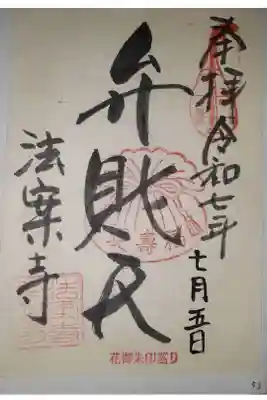 奉拝 令和七年
七月五日
弁財天
法案寺
花御朱印巡り
53